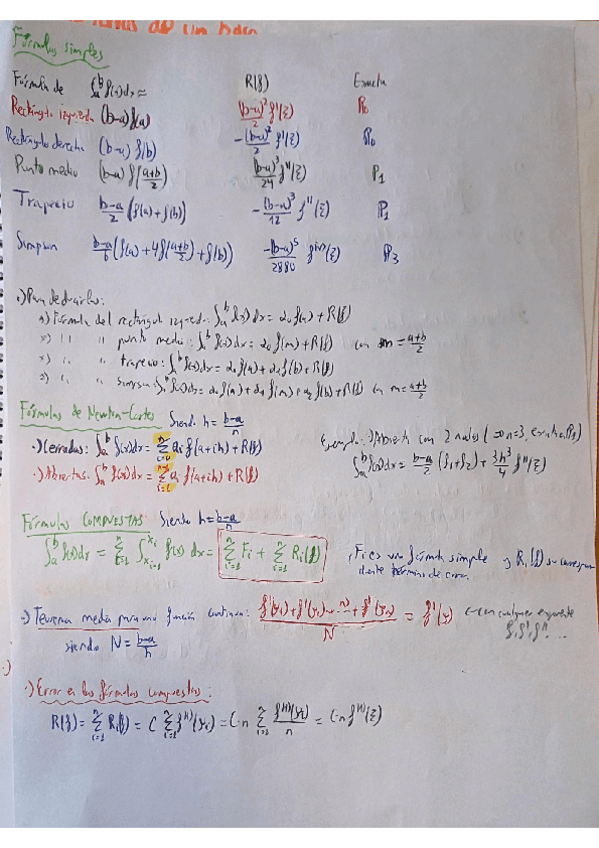 Fórmulas simples
Fórmula de ∫_a^b f(x)dx ≈ R(f) Exacta
Rectángulo izquierda (b-a)f(a) (b-a)²/2 f'(ξ) P₀
Rectángulo derecha (b-a) f(b) -(b-a)²/2 f'(ξ) P₀
Punto medio (b-a) f(a+b/2) (b-a)³/24 f''(ξ) P₁
Trapecio b-a/2 (f(a)+f(b)) -(b-a)³/12 f''(ξ) P₁
Simpson b-a/6 (f(a)+4f(a+b/2)+f(b)) -(b-a)⁵/2880 f^(iv)(ξ) P₃
·) Para deducirlas:
Fórmula del rectángul izquierd: ∫_a^b f(x)dx = α₀ f(a) + R(f)
x) " " punto medio: ∫_a^b f(x)dx = α₀ f(m) + R(f) con m = a+b/2
x) " " trapecio: ∫_a^b f(x)dx = α₀ f(a) + α₁ f(b) + R(f)
" " Simpson: ∫_a^b f(x)dx = α₀ f(a) + α₁ f(m) + α₂ f(b) + R(f) con m = a+b/2
Fórmulas de Newton-Cotes Siendo h = b-a/n
·) Cerradas: ∫_a^b f(x)dx = Σ_{i=0}^{n} αᵢ f(a+ih) + R(f)
·) Abiertas: ∫_a^b f(x)dx = Σ_{i=1}^{n-1} αᵢ f(a+ih) + R(f)
Ejemplo: Abierta con 2 nodos (⇒ n=3, exacta P₁)
∫_a^b f(x)dx = b-a/2 (f₁+f₂) + 3h³/4 f''(ξ)
Fórmulas COMPUESTAS Siendo h = b-a/n
∫_a^b f(x)dx = Σ_{i=1}^{n} ∫_{x_{i-1}}^{x_i} f(x) dx = Σ_{i=1}^{n} Fi + Σ_{i=1}^{n} Rᵢ(f)
, Fi es una fórmula simple y Rᵢ(f) su correspon
diente término de error.
·) Teorema media para una función continua: f'(y₁)+f'(y₂)+...+f'(yₙ)/N = f'(y) con cualquier exponente
f, f', f'', ...
siendo N = b-a/h
·) Error en las fórmulas compuestas:
R(f) = Σ_{i=1}^{n} Rᵢ(f) = C Σ_{i=1}^{n} f^(k)(yᵢ) = C·n Σ_{i=1}^{n} f^(k)(yᵢ)/n = C·n f^(k)(ξ)